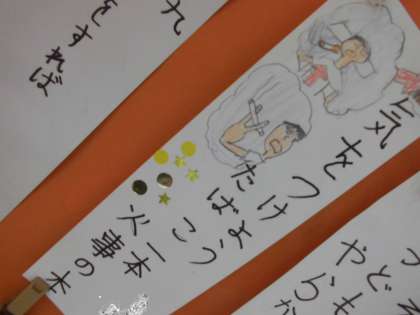 気をつけよう
たばこ一本
火事の木
れ
をすれば
やどらも